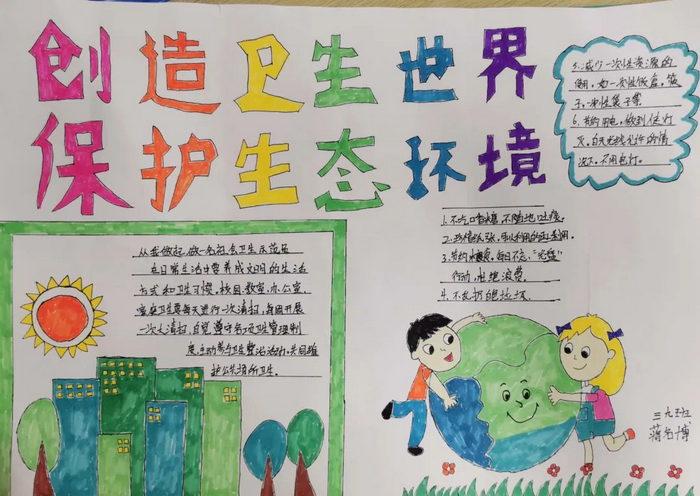 创造卫生世界
保护生态环境
5.减少一次性资源的
使用，如一次性饭盒，筷
子，冲性袋子等
6.节约用电，做到住灯
灭，白天光线允许的情
况下，不用电灯。
从我做起，做一名社会卫生示范员
在日常生活中要养成文明的生活
方式和卫生习惯，校园、教室、办公室、
家庭卫生要每天进行一次清扫，每周开展
一次大清扫，自觉遵守各项卫生管理制
度，主动参与卫生整治活动，共同维
护公共场所卫生。
1.不吃口香糖，不随地吐痰。
2.珍惜纸张，可以利用的再利用。
3.节约粮食，每日不忘“光盘”
行动，杜绝浪费。
4.不乱扔垃圾
三九班